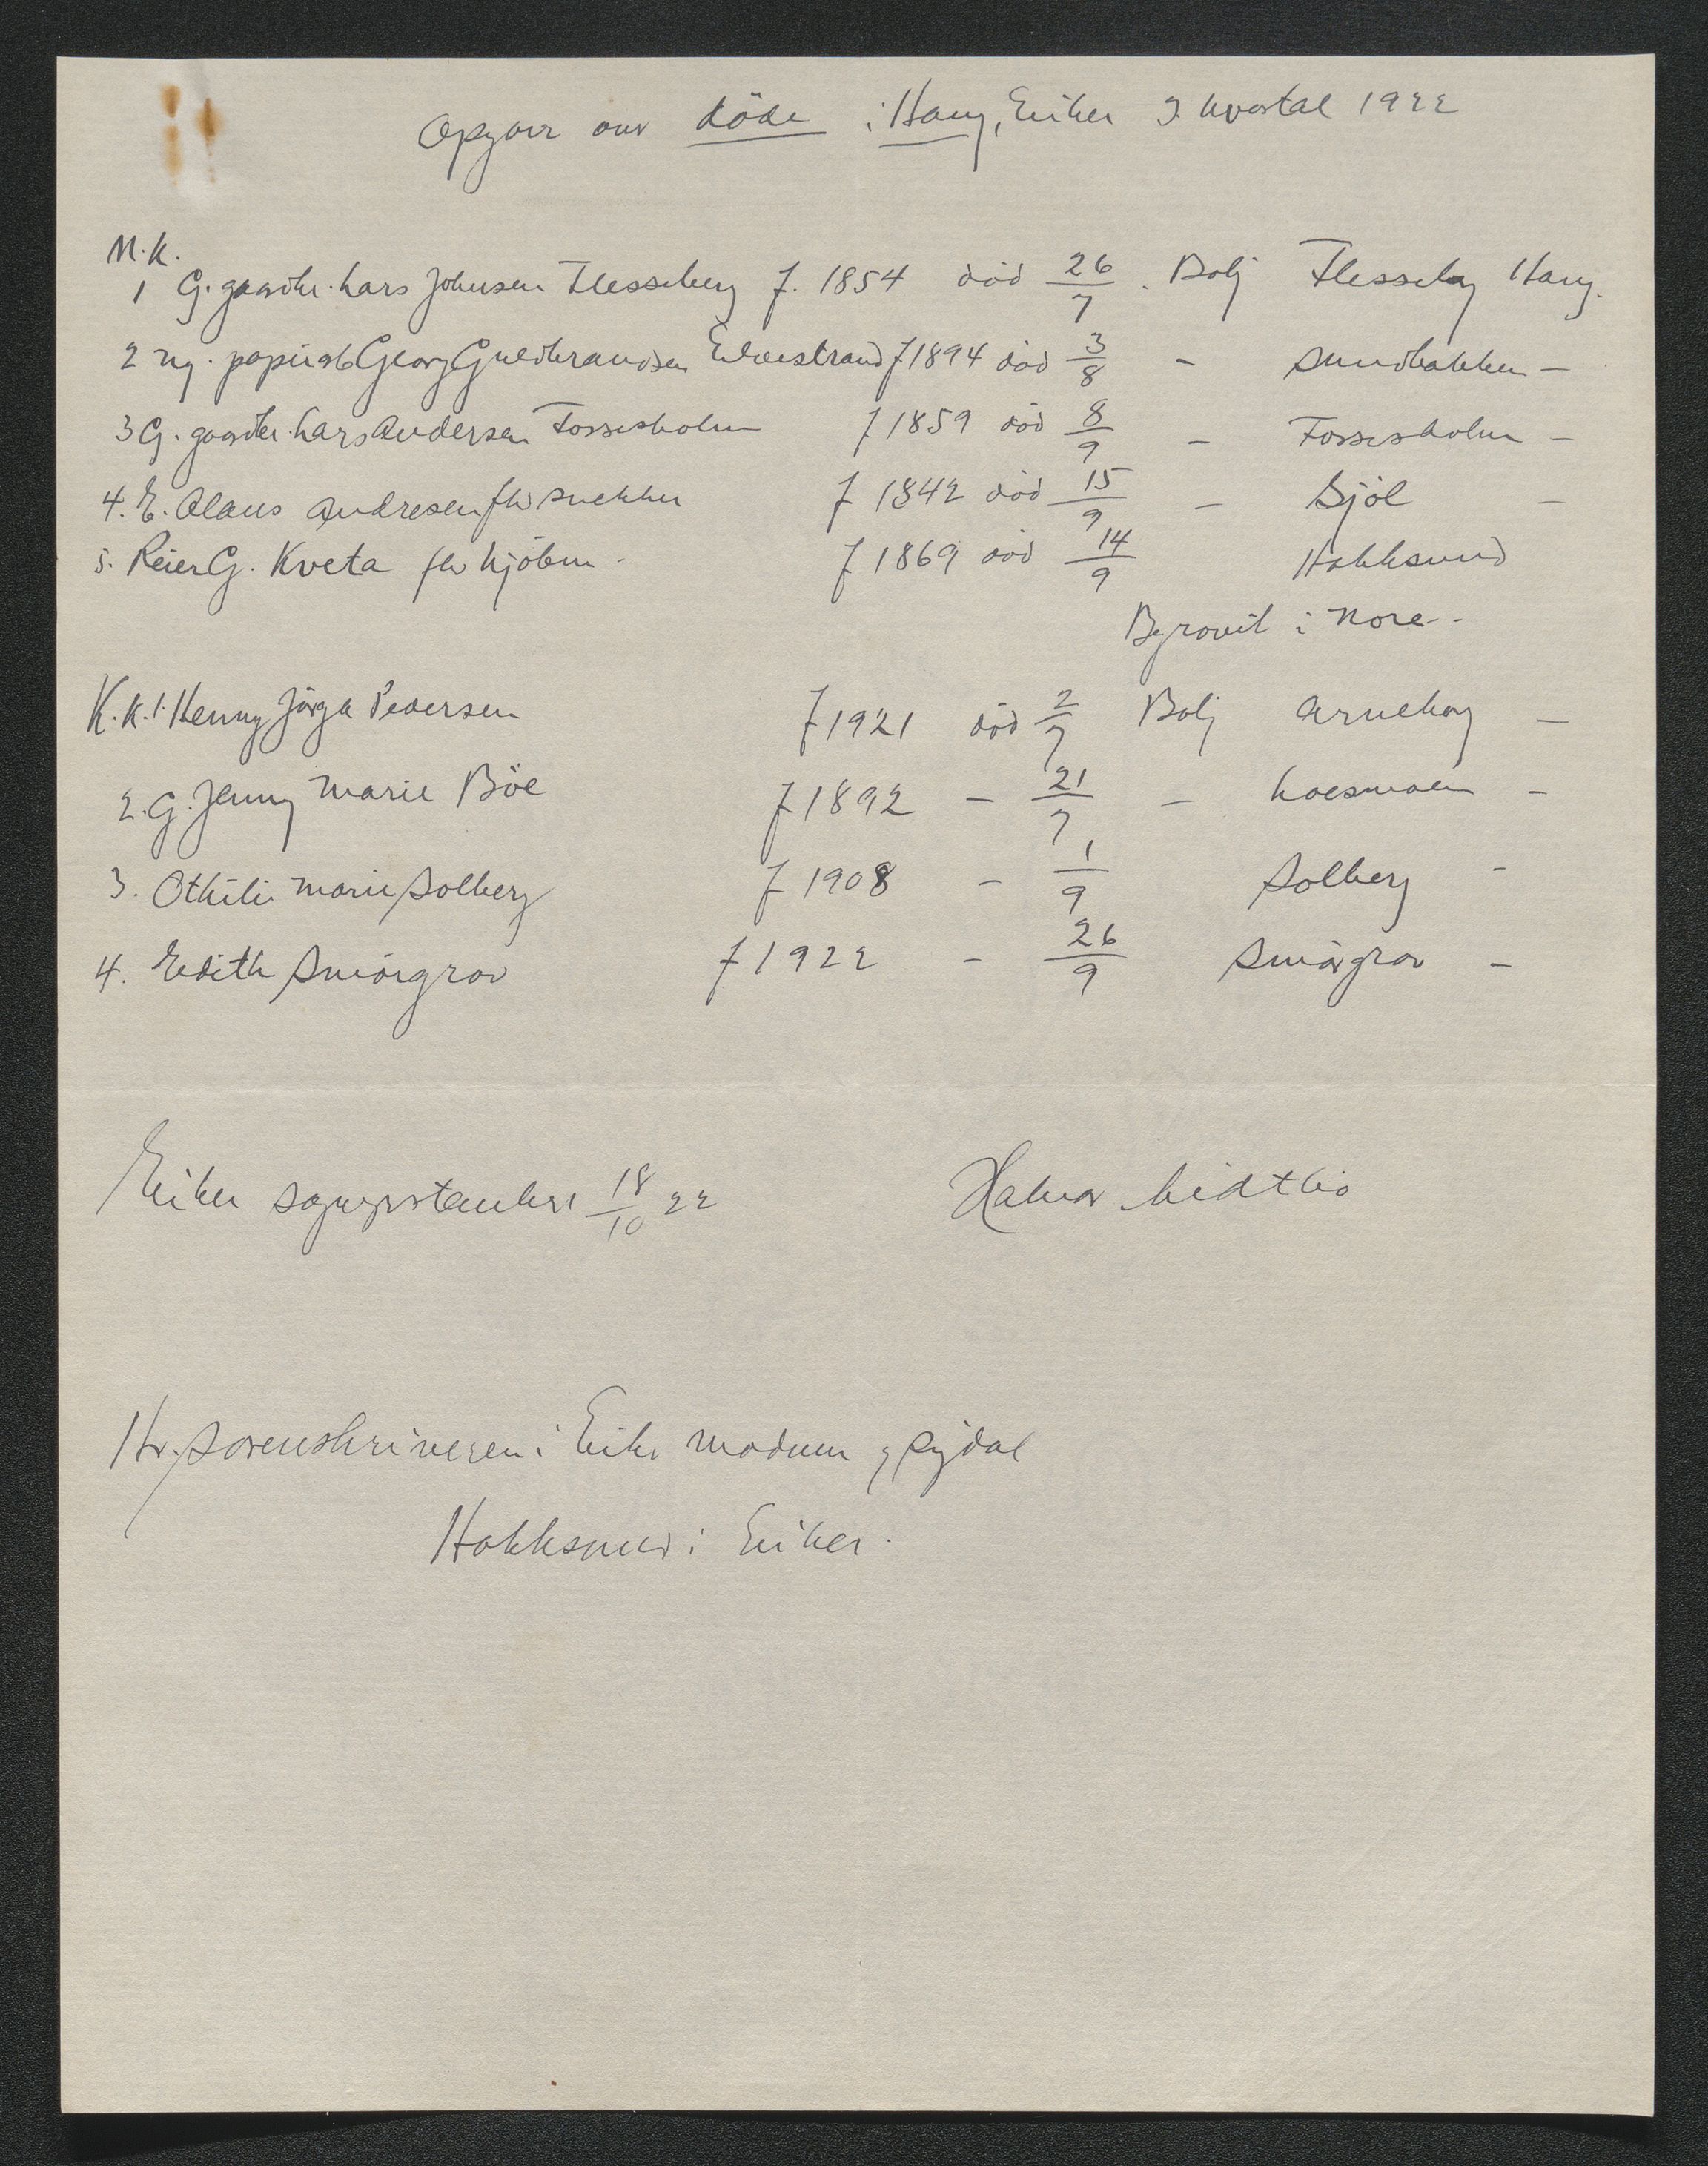 Opgave over döde i Haug, Eiker 3 kvartal 1922
M.K.
1 G. gaardbr. Lars Johnsen Flesseberg f. 1854 död 26/7. Bolj Flesseberg Haug.
2 Ug. papirarb Georg Guldbrandsen Elvestrand f 1894 död 3/8 - Sundbakken -
3 G. gaardbr. Lars Andersen Fossesholm f 1859 död 8/9 - Fossesholm -
4. E. Olaus Andresen fhv snekker f 1842 död 15/9 - Sjöl -
5. Reier G. Kveta fhv kjöbm - f 1869 död 14/9 Hokksund
Begravet i Nore -
K.K. 1. Henny Pedersen f 1921 död 2/7 Bolj -
2. G. Jenny Marie Böe f 1892 - 21/7 - Loesmoen -
3. Othili Marie Solberg f 1908 - 1/9 Solberg -
4. Edith Smörgrav f 1922 - 26/9 Smörgrav -
Eiker sogneprestembede 18/10 22 Halvor Midtbö
Hr. Sorenskriveren i Eiker Modum og Sigdal
Hokksund i Eiker.